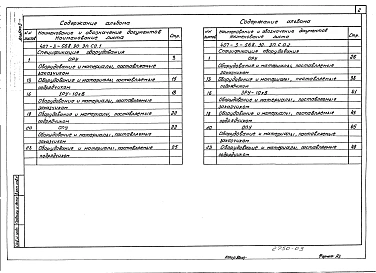 2
Содержание альбома
Наименование и обозначение документов
Наименование листа
Стр.
407-3-568.90 ЭП.СО.1
Спецификация оборудования
1 ОРУ 3
Оборудование и материалы, поставляемые
заказчиком
Оборудование и материалы, поставляемые
подрядчиком
ЗРУ-10кВ 18
Оборудование и материалы, поставляемые
заказчиком
Оборудование и материалы, поставляемые 20
подрядчиком
ОПУ 22
Оборудование и материалы, поставляемые
заказчиком
Оборудование и материалы, поставляемые 25
подрядчиком
Содержание альбома
Наименование и обозначение документов
Наименование листа
Стр.
407-3-568.90 ЭП.СО.2
Спецификация оборудования
1 ОРУ 26
Оборудование и материалы, поставляемые
заказчиком
Оборудование и материалы, поставляемые
подрядчиком
ЗРУ-10кВ
Оборудование и материалы, поставляемые
заказчиком
Оборудование и материалы, поставляемые
подрядчиком
ОПУ
Оборудование и материалы, поставляемые
заказчиком
Оборудование и материалы, поставляемые
подрядчиком
Формат А3